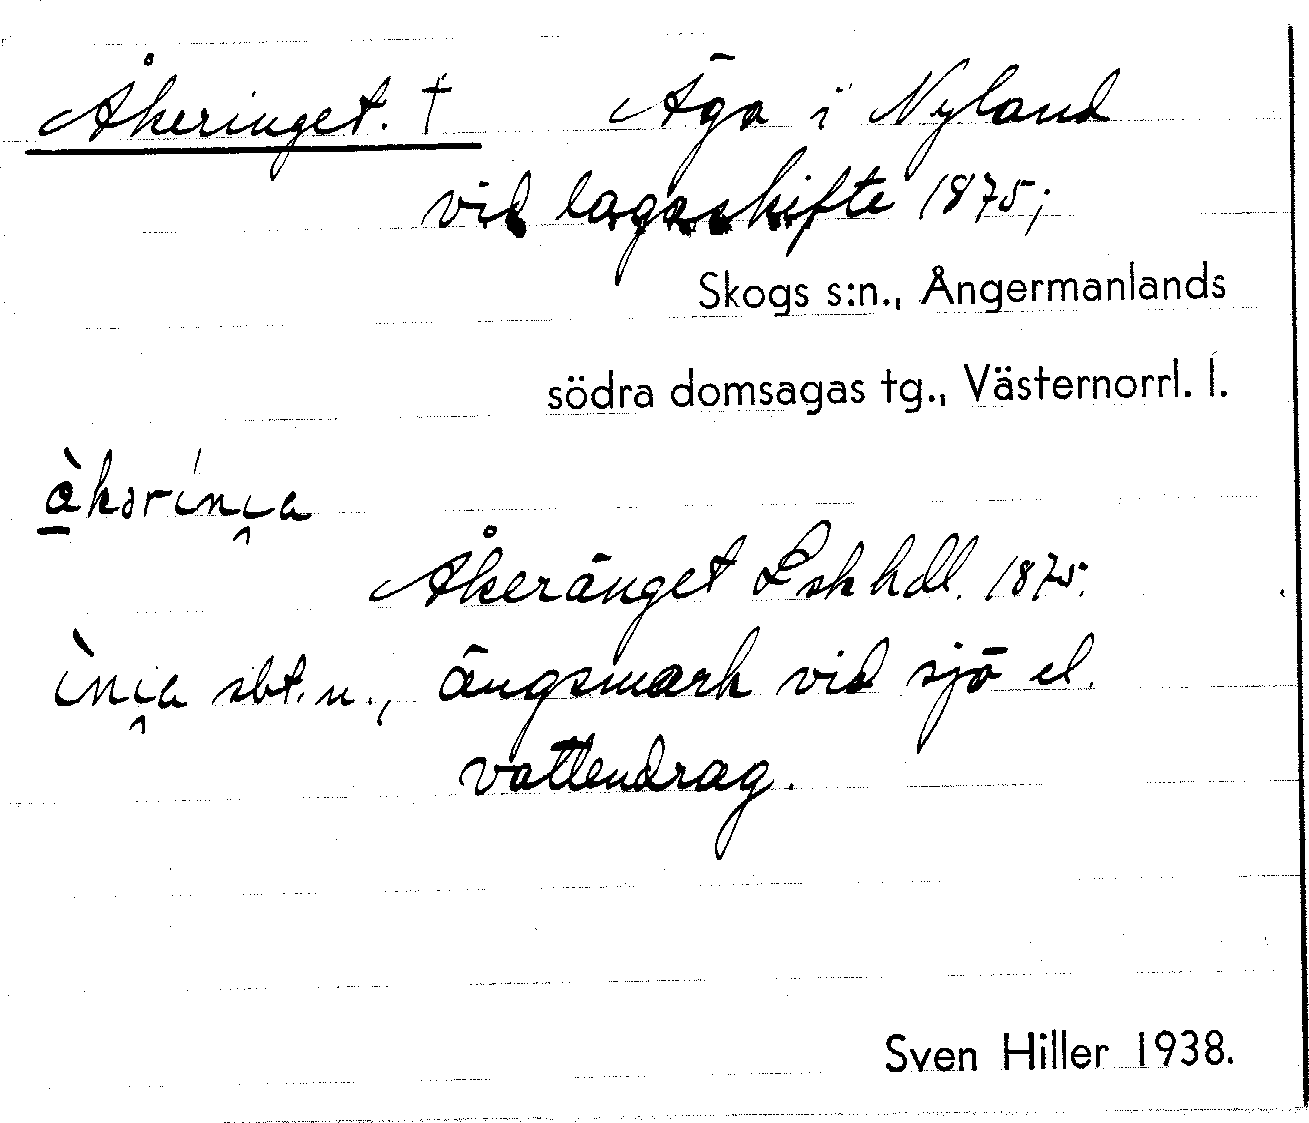 Åkeringet. † Äga i Nyland
vid lagaskifte 1875;
Skogs s:n., Ångermanlands
södra domsagas tg., Västernorrl. l.
Åkeränget Lskhdl. 1875.
sbt. n., ängsmark vid sjö el.
vattendrag.
Sven Hiller 1938.